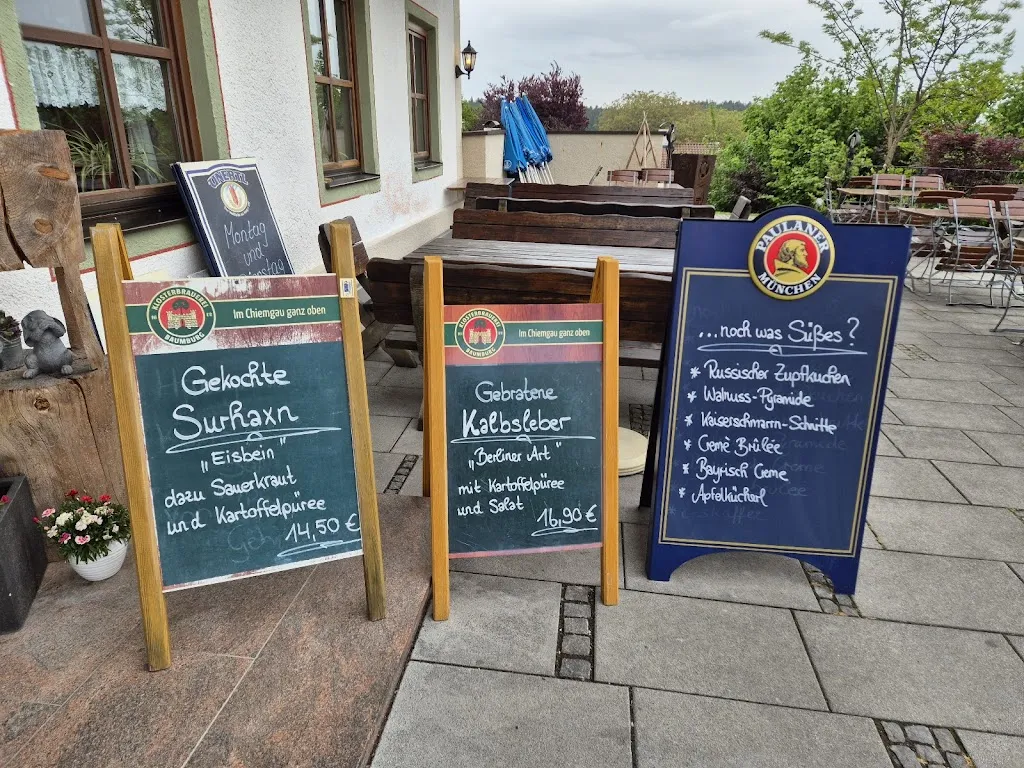 UNERTL
Montag
und
KLOSTERBRAUEREI
BAUMBURG
Im Chiemgau ganz oben
Gekochte
Surhaxn
„Eisbein"
dazu Sauerkraut
und Kartoffelpüree
14,50 €
KLOSTERBRAUEREI
BAUMBURG
Im Chiemgau ganz oben
Gebratene
Kalbsleber
„Berliner Art"
mit Kartoffelpüree
und Salat
16,90 €
PAULANER
MÜNCHEN
...noch was Süßes?
* Russischer Zupfkuchen
* Walnuss-Pyramide
* Kaiserschmarrn-Schnitte
* Cremè Brûlée
* Bayrisch Creme
* Apfelkücherl